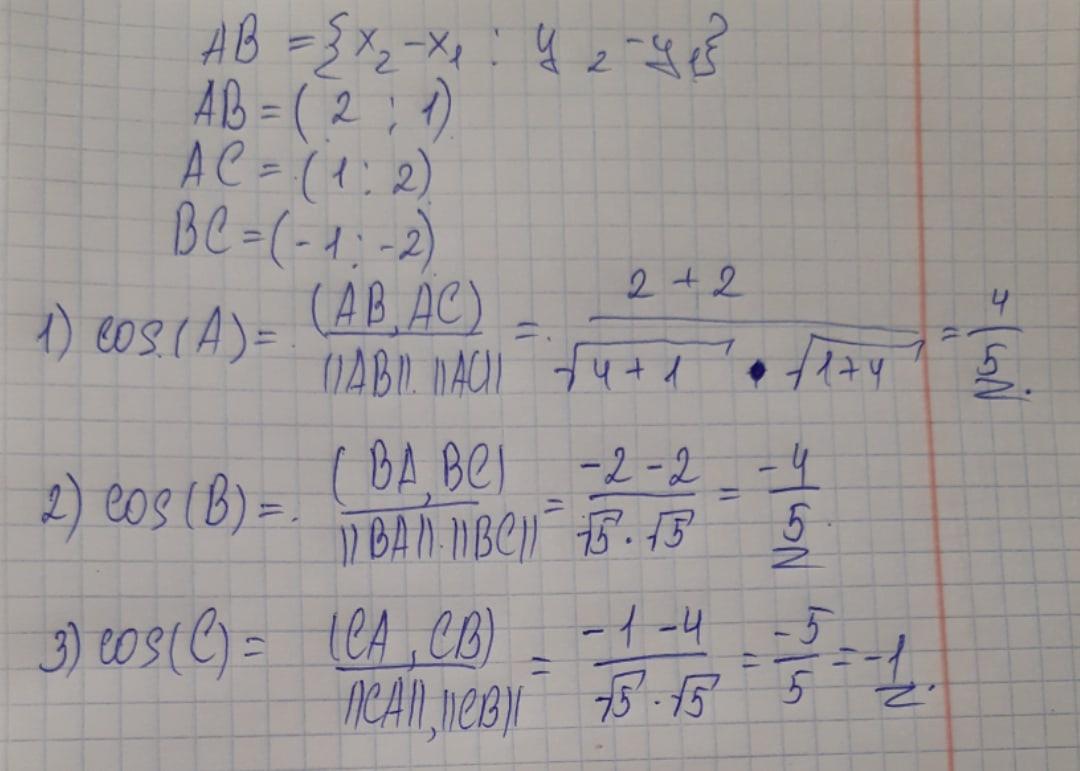 AB = {x₂ - x₁ : y₂ - y₁}
AB = ( 2 ; 1)
AC = (1 : 2)
BC = (-1 : -2)
1) cos(A) = (AB, AC) / ||AB|| · ||AC|| = 2 + 2 / √4+1 · √1+4 = 4/5.
2) cos(B) = (BA, BC) / ||BA|| · ||BC|| = -2 -2 / √5 · √5 = -4/5
3) cos(C) = (CA, CB) / ||CA||, ||CB|| = -1 -4 / √5 · √5 = -5/5 = -1.